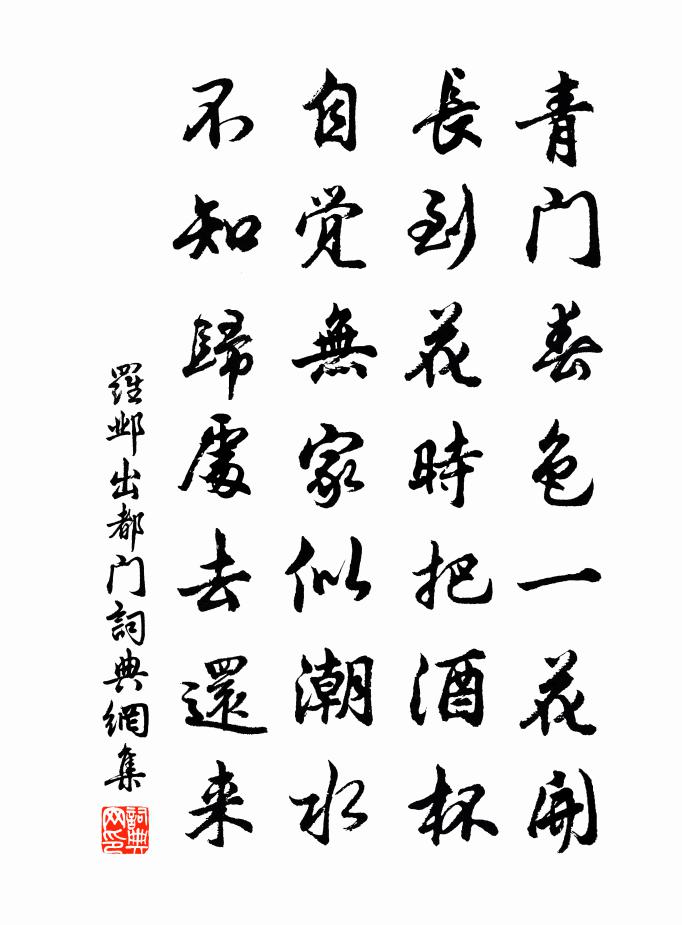 青门春色一花開
長到花時把酒杯
自觉無家似潮水
不知歸處去還来
羅邺出都门詞典網集
詞典网印